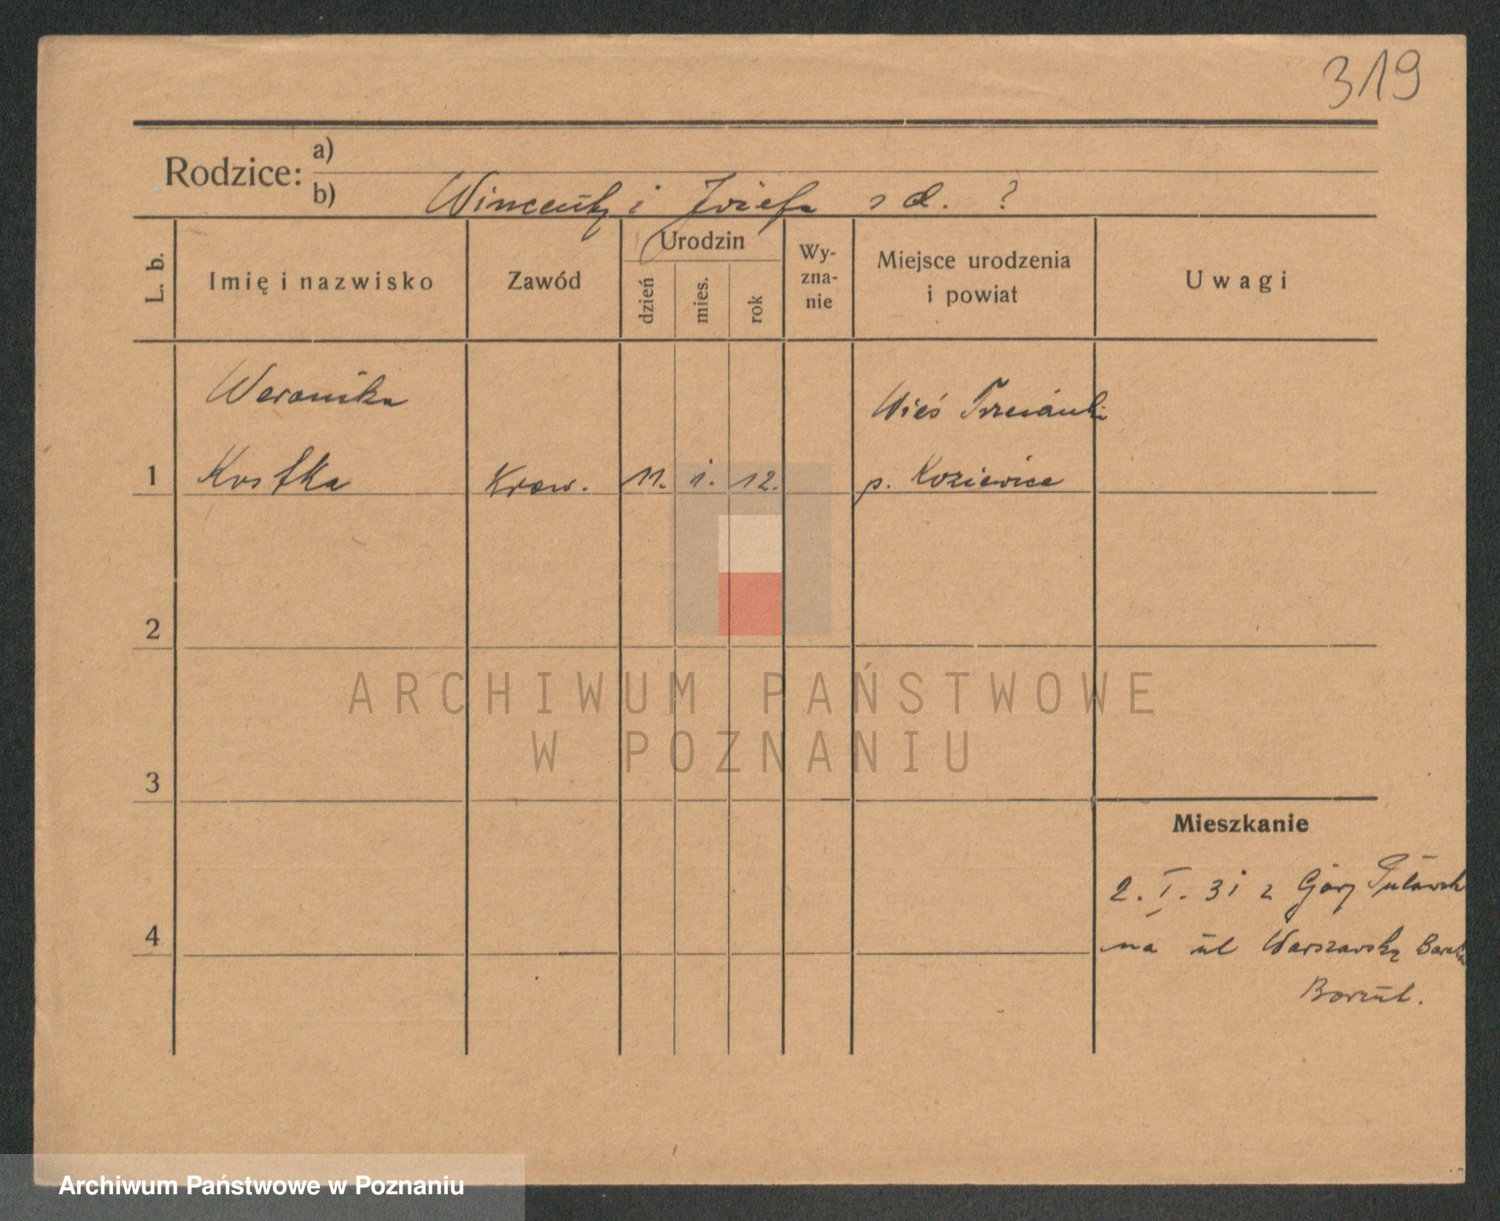 319
Rodzice: a)
b) Wincenty i Józefa z d. ?
L. b.
Imię i nazwisko
Zawód
Urodzin
dzień
mies.
rok
Wy-
zna-
nie
Miejsce urodzenia
i powiat
Uwagi
Weronika
Wieś
1 Kostka Kraw. 11. i. 12. p. Koziewice
2
3
4
Mieszkanie
2. I. 31 z Góry Puławsk
na ul Warszawską
ARCHIWUM PAŃSTWOWE
W POZNANIU
Archiwum Państwowe w Poznaniu